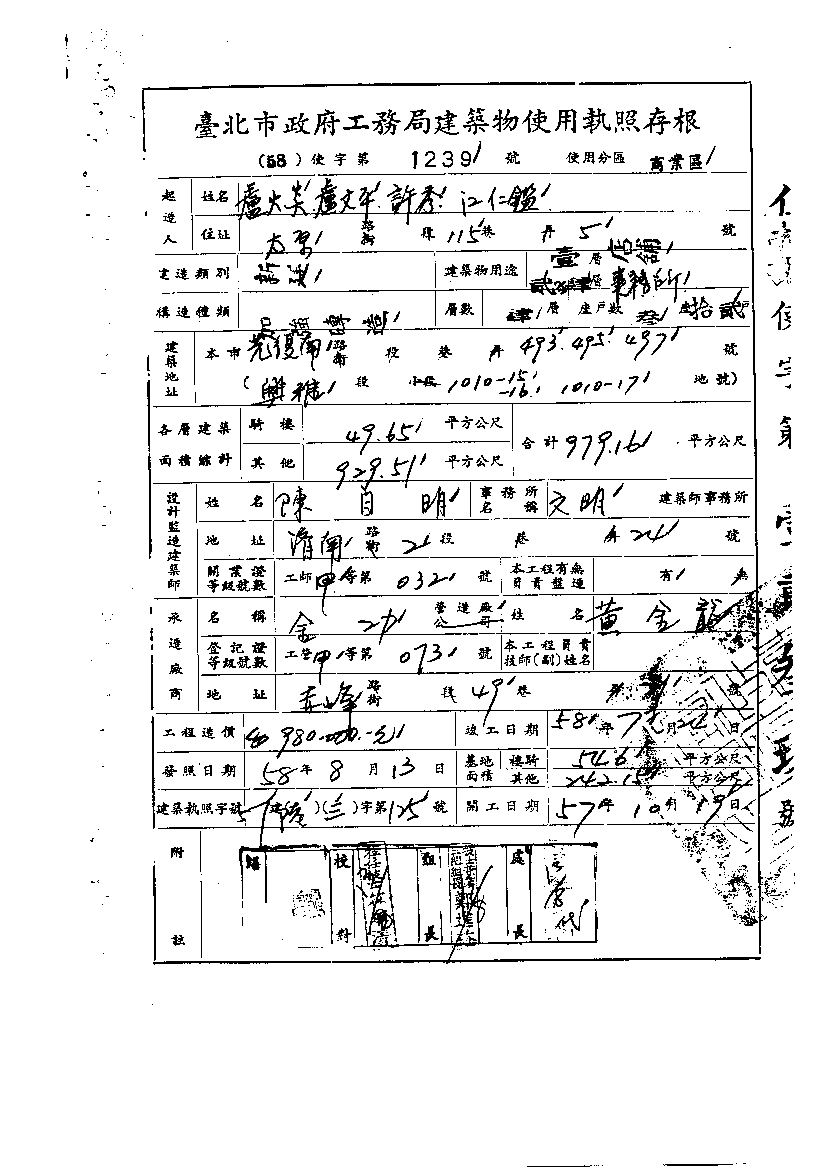 臺北市政府工務局建築物使用執照存根
(58) 使字第 1239 號 使用分區 商業區
起造人 姓名 盧火炎 盧文平 許秀 江仁鑑
住址 太原 路街 段 115 巷 弄 5 號
建造類別 新築 建築物用途 壹層 店舖 貳 層 事務所
構造種類 加強磚造 層數 層 座戶數 叁 座 拾貳 戶
建築地址 本市 光復南 路街 段 巷 弄 493.495.497 號
(興雅 段 小段 1010-15 -16. 1010-17 地號)
各層建築面積總計 騎樓 49.65 平方公尺 合計 979.16 平方公尺
其他 929.51 平方公尺
設計監造建築師 姓名 陳 明 事務所名稱 文明 建築師事務所
地址 濟南 路街 2 段 巷 弄 24 號
開業證等級號數 工師 甲 等第 0321 號 本工程有無負責監造 有 無
承造廠商 名稱 金 營造廠公司 姓名 黃金龍
登記證等級號數 工營 甲 等第 073 號 本工程負責技師(副)姓名
地址 赤峰 路街 段 49 巷 弄 號
工程造價 980.000.-元 竣工日期 58 年 7 月 24 日
發照日期 58 年 8 月 13 日 基地面積 騎樓 54.6 平方公尺
其他 242.15 平方公尺
建築執照字號 57 建 ( ) 字第 125 號 開工日期 57 年 10 月 19 日
附註 繕 校對 組長 處長
使字第 號